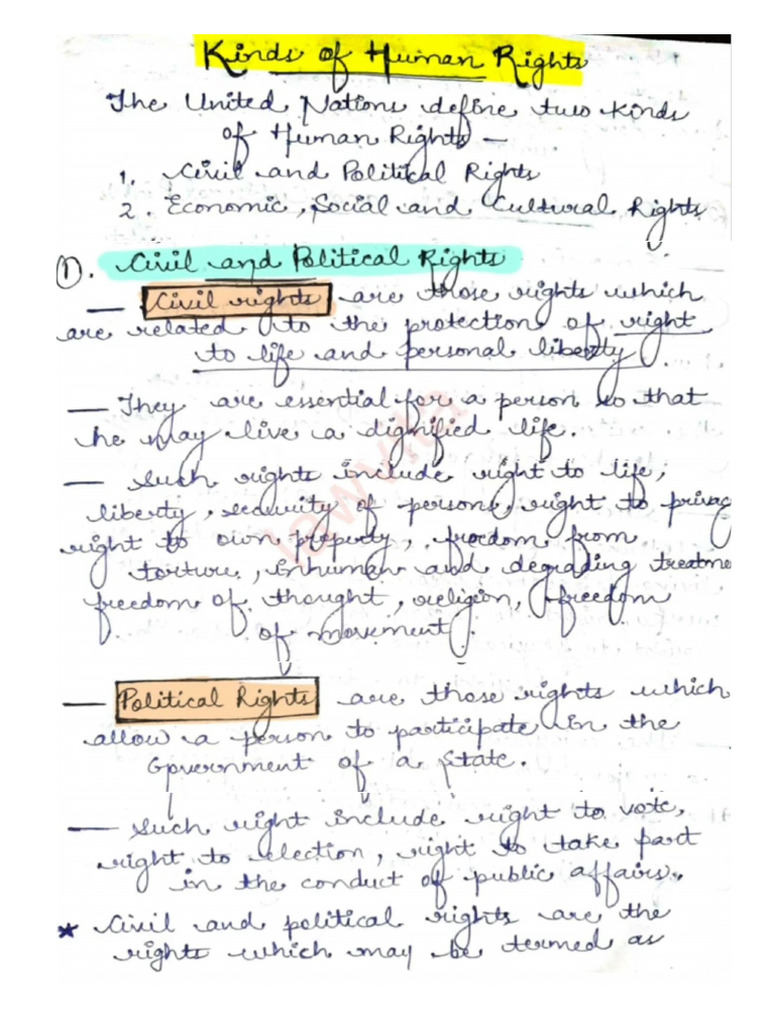 Kinds of Human Rights
The United Nations define two kinds
of Human Rights —
1. Civil and Political Rights
2. Economic, Social and Cultural Rights
1. Civil and Political Rights
— Civil rights are those rights which
are related to the protection of right
to life and personal liberty.
— They are essential for a person so that
he may live a dignified life.
— Such rights include right to life,
liberty, security of persons, right to privac
right to own property, freedom from
torture, inhuman and degrading treatme
freedom of thought, religion, freedom
of movement.
— Political Rights are those rights which
allow a person to participate in the
Government of a State.
— Such right include right to vote,
right to election, right to take part
in the conduct of public affairs.
* Civil and political rights are the
rights which may be termed as
lawvita